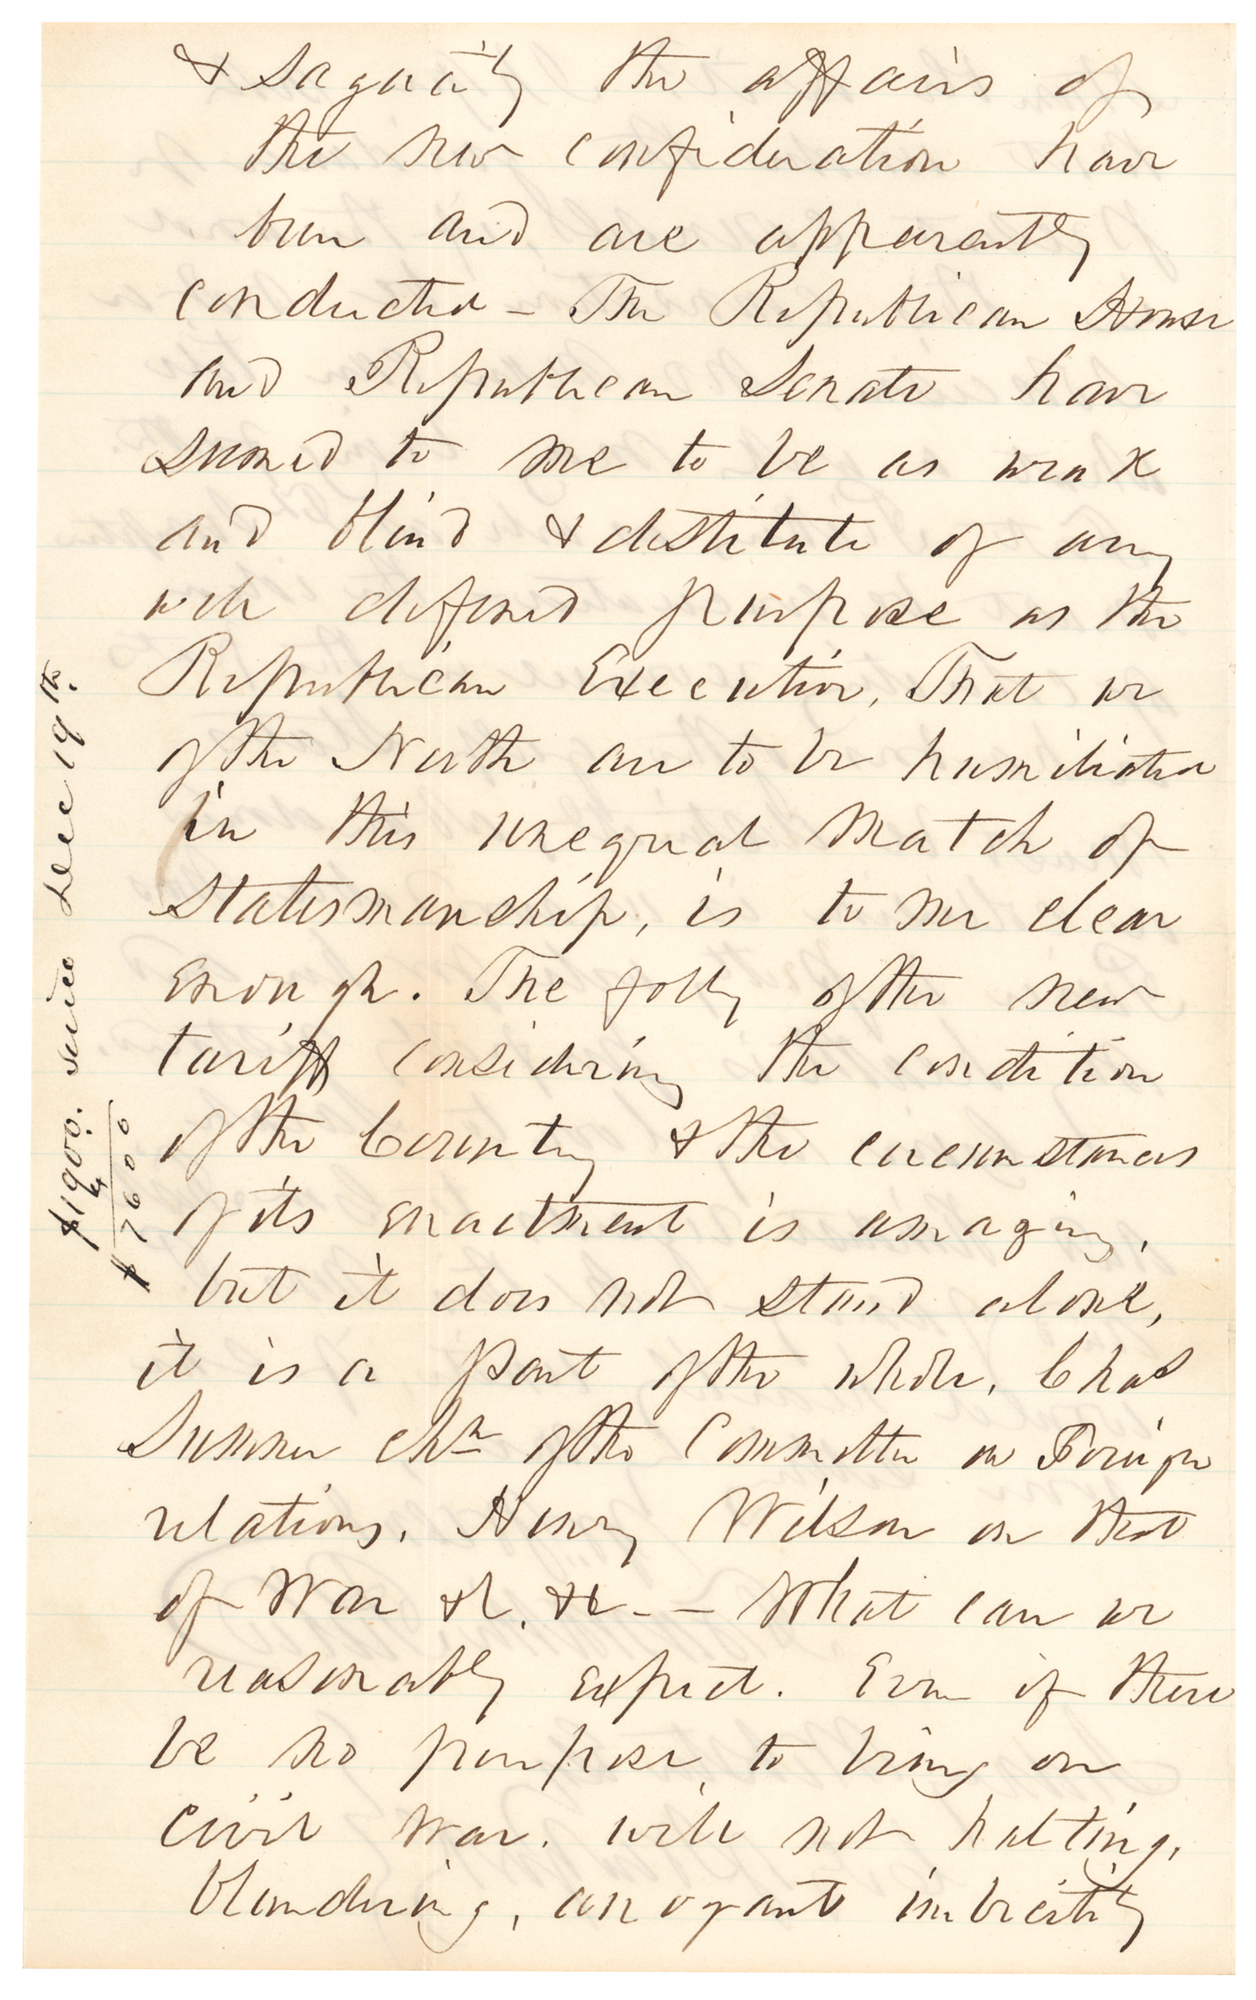 & sagacity the affairs of
the new confederation have
been and are apparently
conducted – The Republican House
and Republican Senate have
seemed to me to be as weak
and blind & destitute of any
well defined purpose as the
Republican Executive, That we
of the North are to be humiliated
in this unequal match of
statesmanship, is to me clear
enough. The folly of the new
tariff considering the condition
of the Country & the circumstances
of its enactment is amazing,
but it does not stand alone,
it is a part of the whole. Chas
Sumner chn of the Committee on Foreign
relations, Henry Wilson on that
of War &c. &c - – What can we
reasonably expect. Even if there
be no purpose to bring on
civil war. will not halting,
blundering, arrogant imbecility
$1900. since Dec 19th.
4
$7600